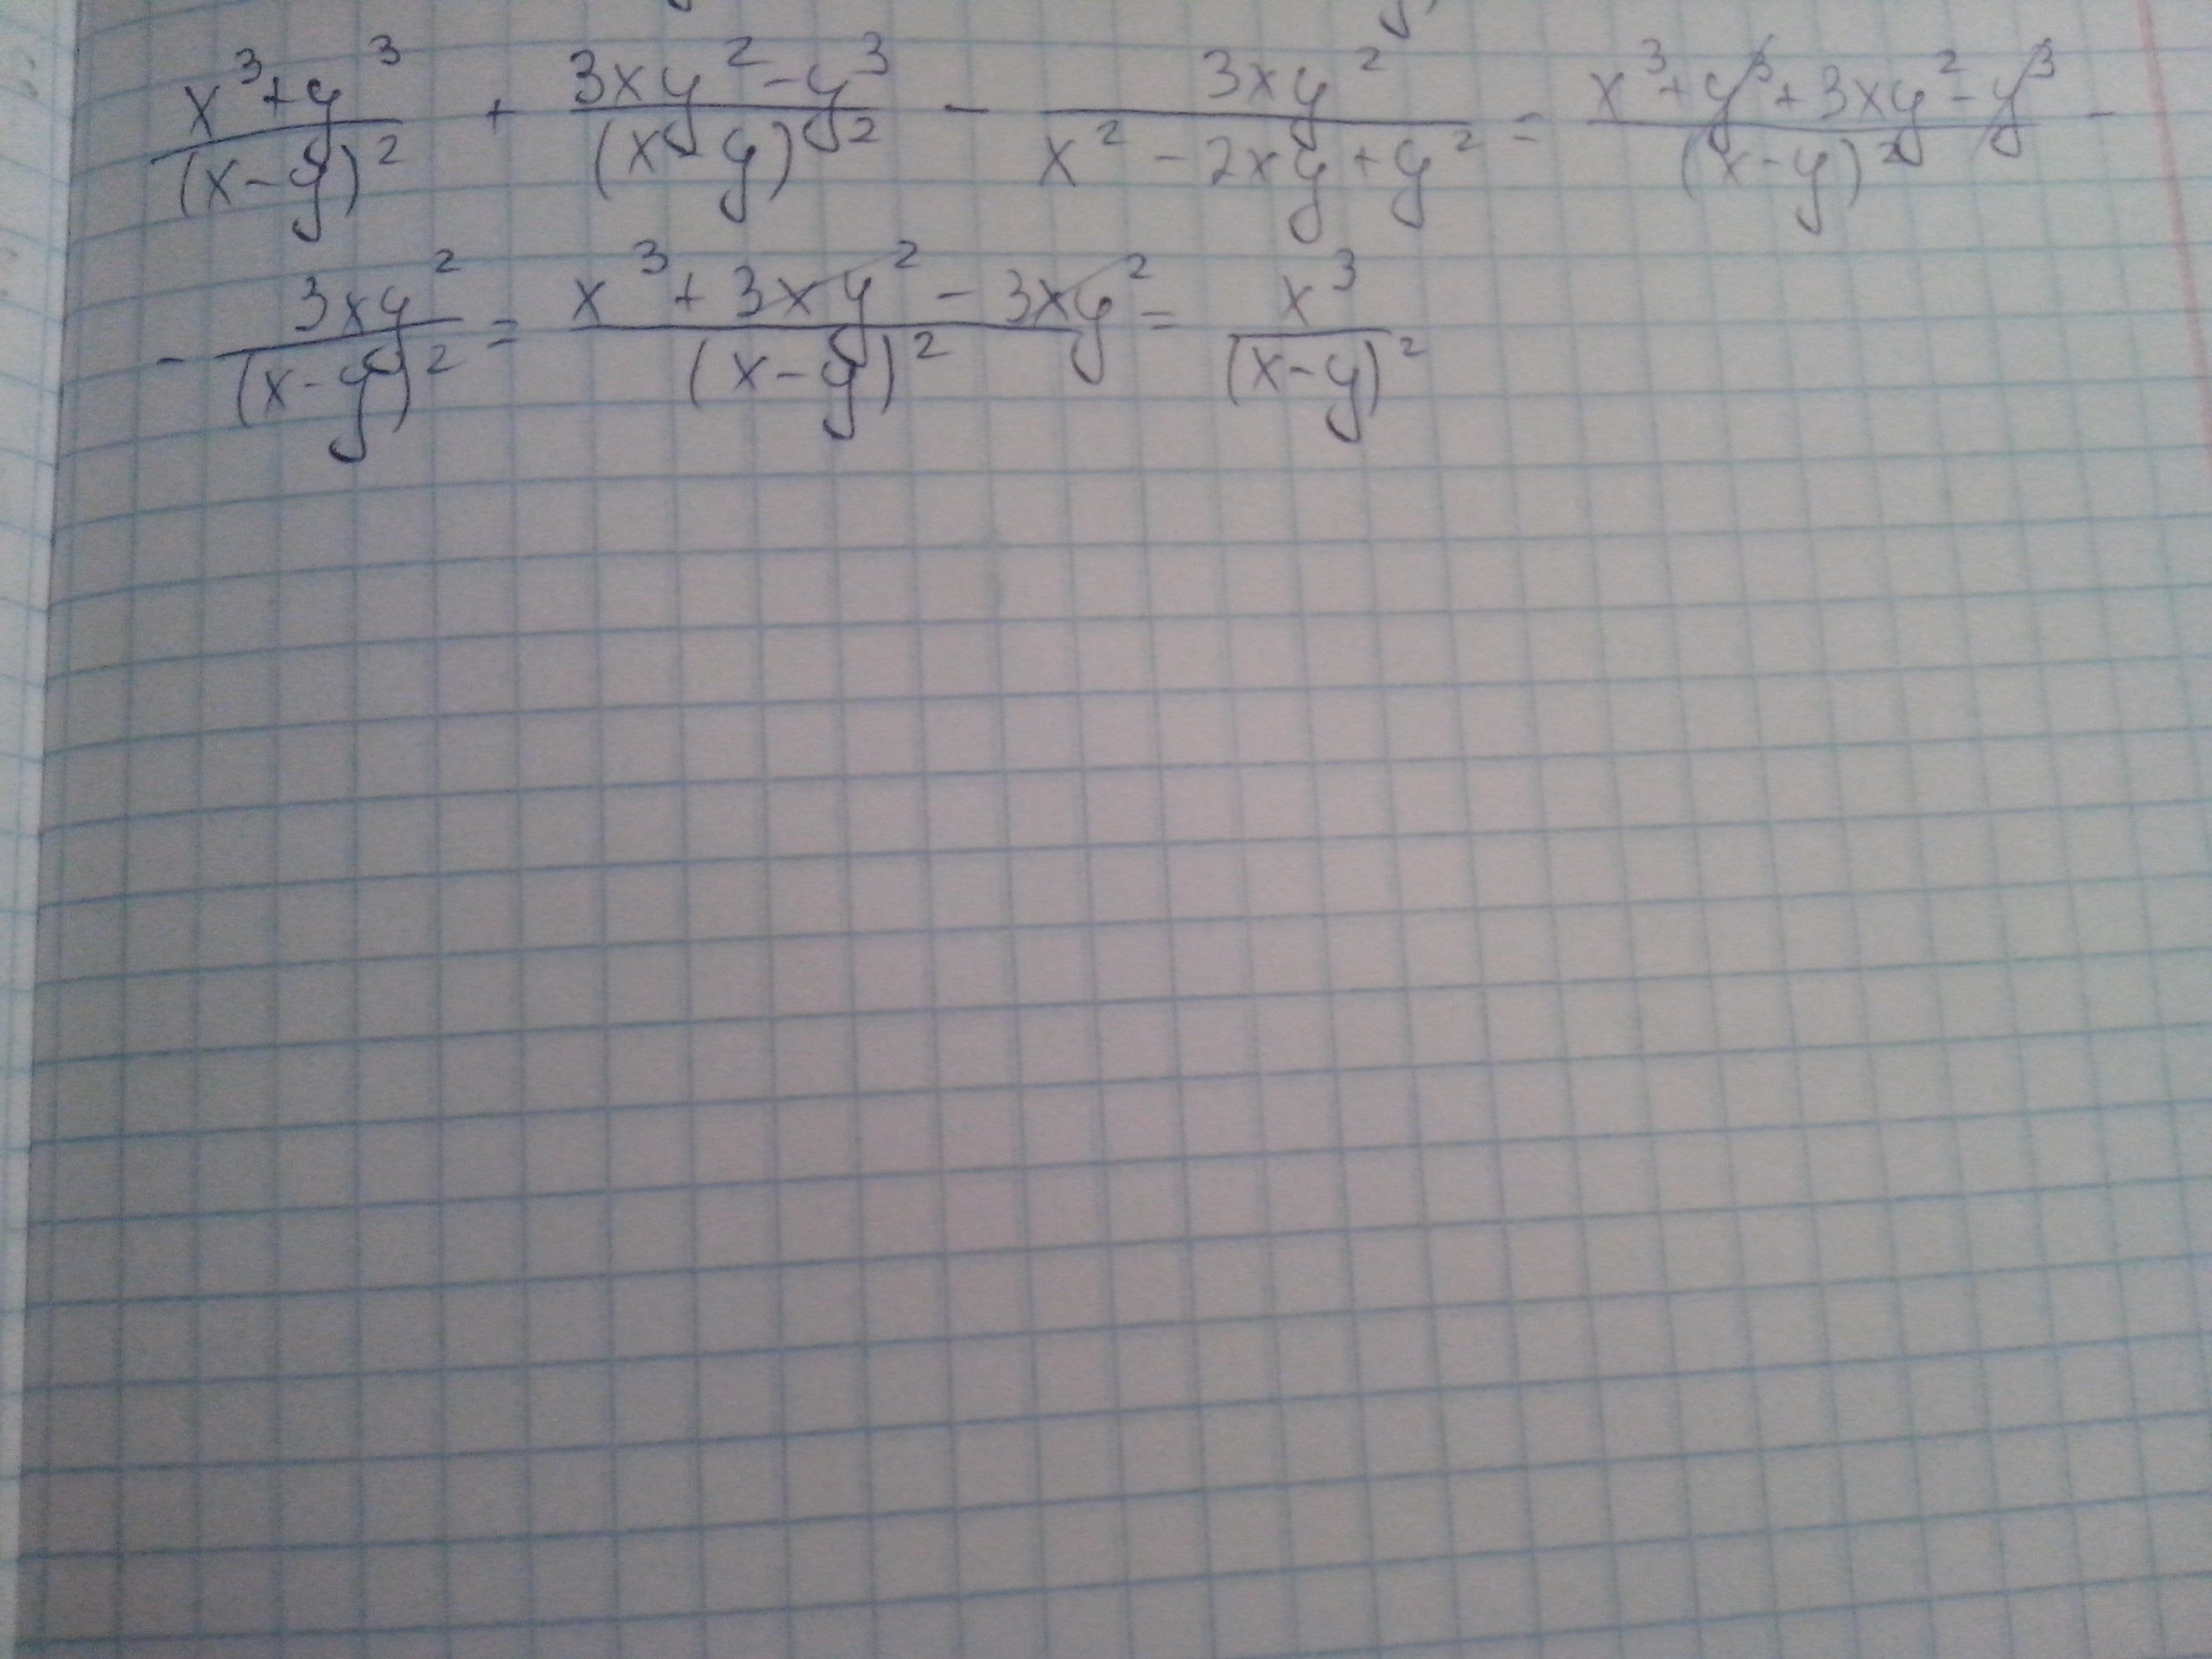 (x³+y³)/(x-y)² + (3xy²-y³)/(x-y)² - 3xy²/(x²-2xy+y²) = (x³+y³+3xy²-y³)/(x-y)² -
- 3xy²/(x-y)² = (x³+3xy²-3xy²)/(x-y)² = x³/(x-y)²